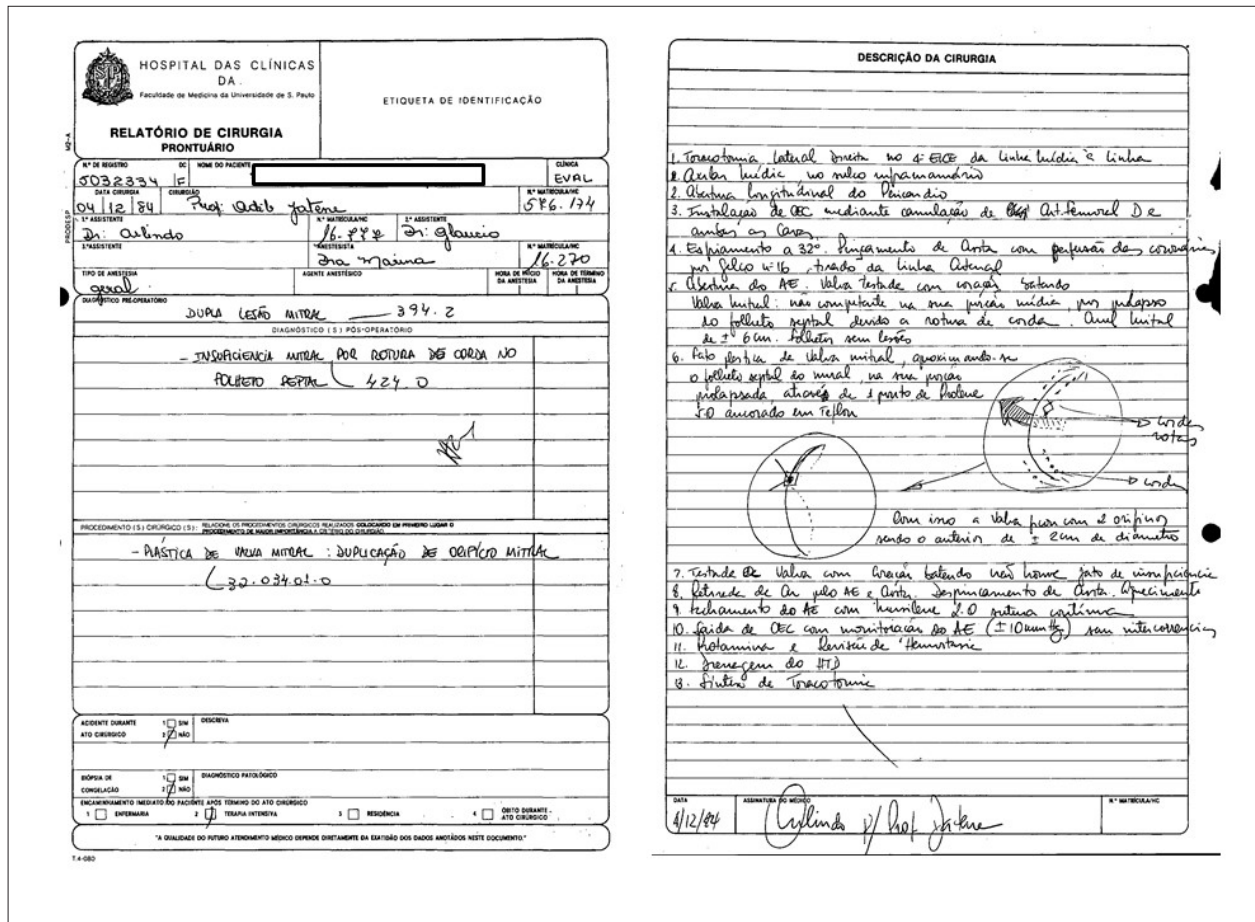 HOSPITAL DAS CLÍNICAS
DA
Faculdade de Medicina da Universidade de S. Paulo
ETIQUETA DE IDENTIFICAÇÃO
RELATÓRIO DE CIRURGIA
PRONTUÁRIO
M2-A
N.º DE REGISTRO DC NOME DO PACIENTE CLÍNICA
5032334 F EVAL
DATA CIRURGIA CIRURGIÃO N.º MATRÍCULA/HC
04 12 84 Prof. Adib Jatene 576.174
PRODESP
1.º ASSISTENTE N.º MATRÍCULA/HC 2.º ASSISTENTE
Dr. Arlindo Dr. Glaucio
3.º ASSISTENTE ANESTESISTA N.º MATRÍCULA/HC
Dra 16.270
TIPO DE ANESTESIA AGENTE ANESTÉSICO HORA DE INÍCIO DA ANESTESIA HORA DE TÉRMINO DA ANESTESIA
geral
DIAGNÓSTICO PRÉ-OPERATÓRIO
DUPLA LESÃO MITRAL 394.2
DIAGNÓSTICO (S) PÓS-OPERATÓRIO
- INSUFICIENCIA MITRAL POR ROTURA DE CORDA NO
FOLHETO SEPTAL 424.0
PROCEDIMENTO (S) CIRÚRGICO (S): RELACIONE OS PROCEDIMENTOS CIRÚRGICOS REALIZADOS COLOCANDO EM PRIMEIRO LUGAR O
PROCEDIMENTO DE MAIOR IMPORTÂNCIA A CRITÉRIO DO CIRURGIÃO.
- PLÁSTICA DE VALVA MITRAL : DUPLICAÇÃO DE ORIFÍCIO MITRAL
32.034.01.0
ACIDENTE DURANTE ATO CIRÚRGICO 1 SIM 2 NÃO DESCREVA
BIÓPSIA DE CONGELAÇÃO 1 SIM 2 NÃO DIAGNÓSTICO PATOLÓGICO
ENCAMINHAMENTO IMEDIATO DO PACIENTE APÓS TÉRMINO DO ATO CIRÚRGICO
1 ENFERMARIA 2 TERAPIA INTENSIVA 3 RESIDÊNCIA 4 ÓBITO DURANTE ATO CIRÚRGICO
"A QUALIDADE DO FUTURO ATENDIMENTO MÉDICO DEPENDE DIRETAMENTE DA EXATIDÃO DOS DADOS ANOTADOS NESTE DOCUMENTO."
T.4-080
DESCRIÇÃO DA CIRURGIA
1. Toracotomia lateral direita no 4º EICE da linha média à linha
axilar média no sulco inframamário
2. Abertura longitudinal do Pericárdio
3. Instalação de CEC mediante canulação de Art. femoral D e
ambas as Cavas
4. Esfriamento a 32º. Pinçamento de Aorta com perfusão das coronárias
por Gelco nº 16, tirado da linha Arterial
5. Abertura do AE. Valva Testada com coração batendo
Valva Mitral: não competente na sua porção média, por prolapso
do folheto septal devido a rotura de corda. Anel Mitral
de ± 6 cm. folhetos sem lesões
6. Feito plástica de Valva mitral, aproximando-se
o folheto septal ao mural, na sua porção
prolapsada, através de 1 ponto de Prolene
5.0 ancorado em Teflon
cordas
rotas
corda
Com isso a Valva ficou com 2 orifícios
sendo o anterior de ± 2 cm de diâmetro
7. Testada a Valva com Coração batendo não houve jato de insuficiência
8. Retirada de Ar pelo AE e Aorta. Despinçamento de Aorta. Aquecimento
9. Fechamento do AE com Mersilene 2.0 sutura contínua
10. Saída de CEC com monitoração do AE (±10 mmHg) sem intercorrências
11. Protamina e Revisão de Hemostasia
12. Drenagem do HTD
13. Síntese de Toracotomia
DATA ASSINATURA DO MÉDICO N.º MATRÍCULA/HC
4/12/84 Arlindo p/ Prof. Jatene